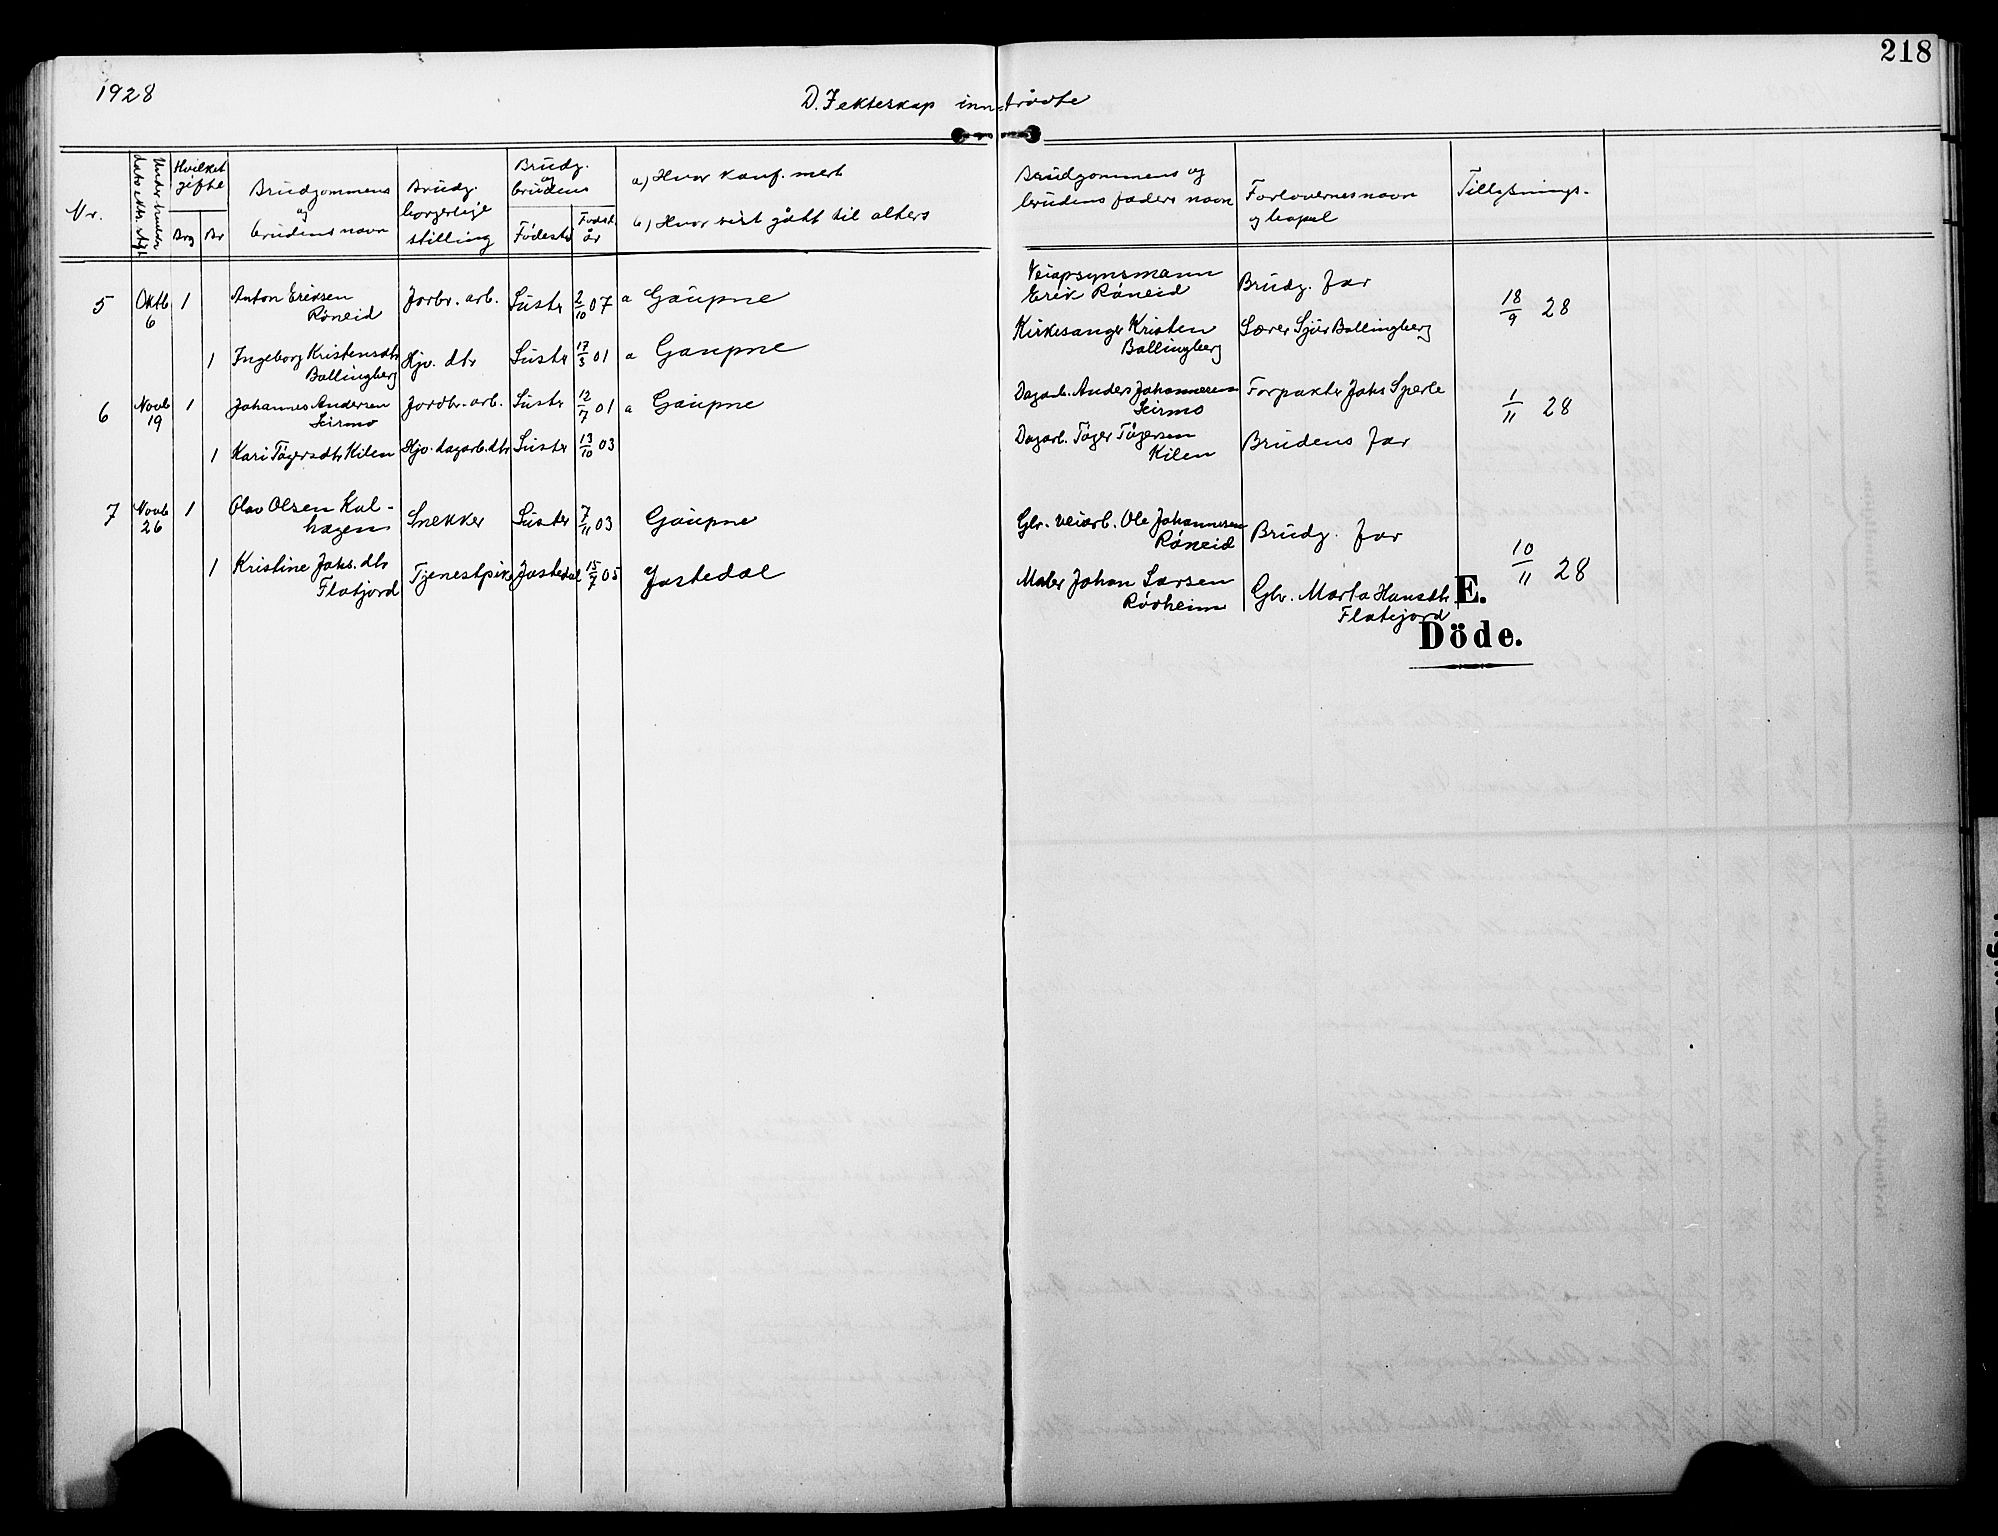 218
1928
D. Fekteskap inntrådte
Nr.
Hvilket gifte
Brg
Br
Brudgommens
og
brudens navn
Brudg.
borgerlige
stilling
Brudg.
og
brudens
Fødestd
Fødsl.
år
a) Hvor konf. mert
b) Hvor sist gått til alters
Brudgommens og
brudens faders navn
Forlovernes navn
og bopel
Tillysnings-
5 Oktb 6 1 Anton Eriksen Røneid Jorbr. arb. Luster 2/10 07 a Gaupne
Veiopsynsmann Erik Røneid Brudg. far 18/9 28
1 Ingeborg Kristensdtr Bollingberg Hjv. dtr Luster 17/3 01 a Gaupne
Kirkesanger Kristen Bollingberg Lærer Sjur Bollingberg
6 Novb 19 1 Johannes Andersen Leirmo Jordbr. arb. Luster 12/7 01 a Gaupne
Dagarb. Anders Johannesen Leirmo Forpakter Johs Sperle 1/11 28
1 Kari Tøgersdtr Kilen Hjv. dagarb. dtr Luster 13/10 03
Dagarb. Tøger Tøgersen Kilen Brudens far
7 Novb 26 1 Olav Olsen Kalhagen Snekker Luster 7/11 03 Gaupne
Gbr. veiarb. Ole Johannesen Røneid Brudg. far 10/11 28
1 Kristine Johs. dtr Flatjord Tjenestpike Jostedal 15/7 05 Jostedal
Maler Johan Larsen Rørheim Gbr. Marta Hansdtr Flatjord
E.
Döde.